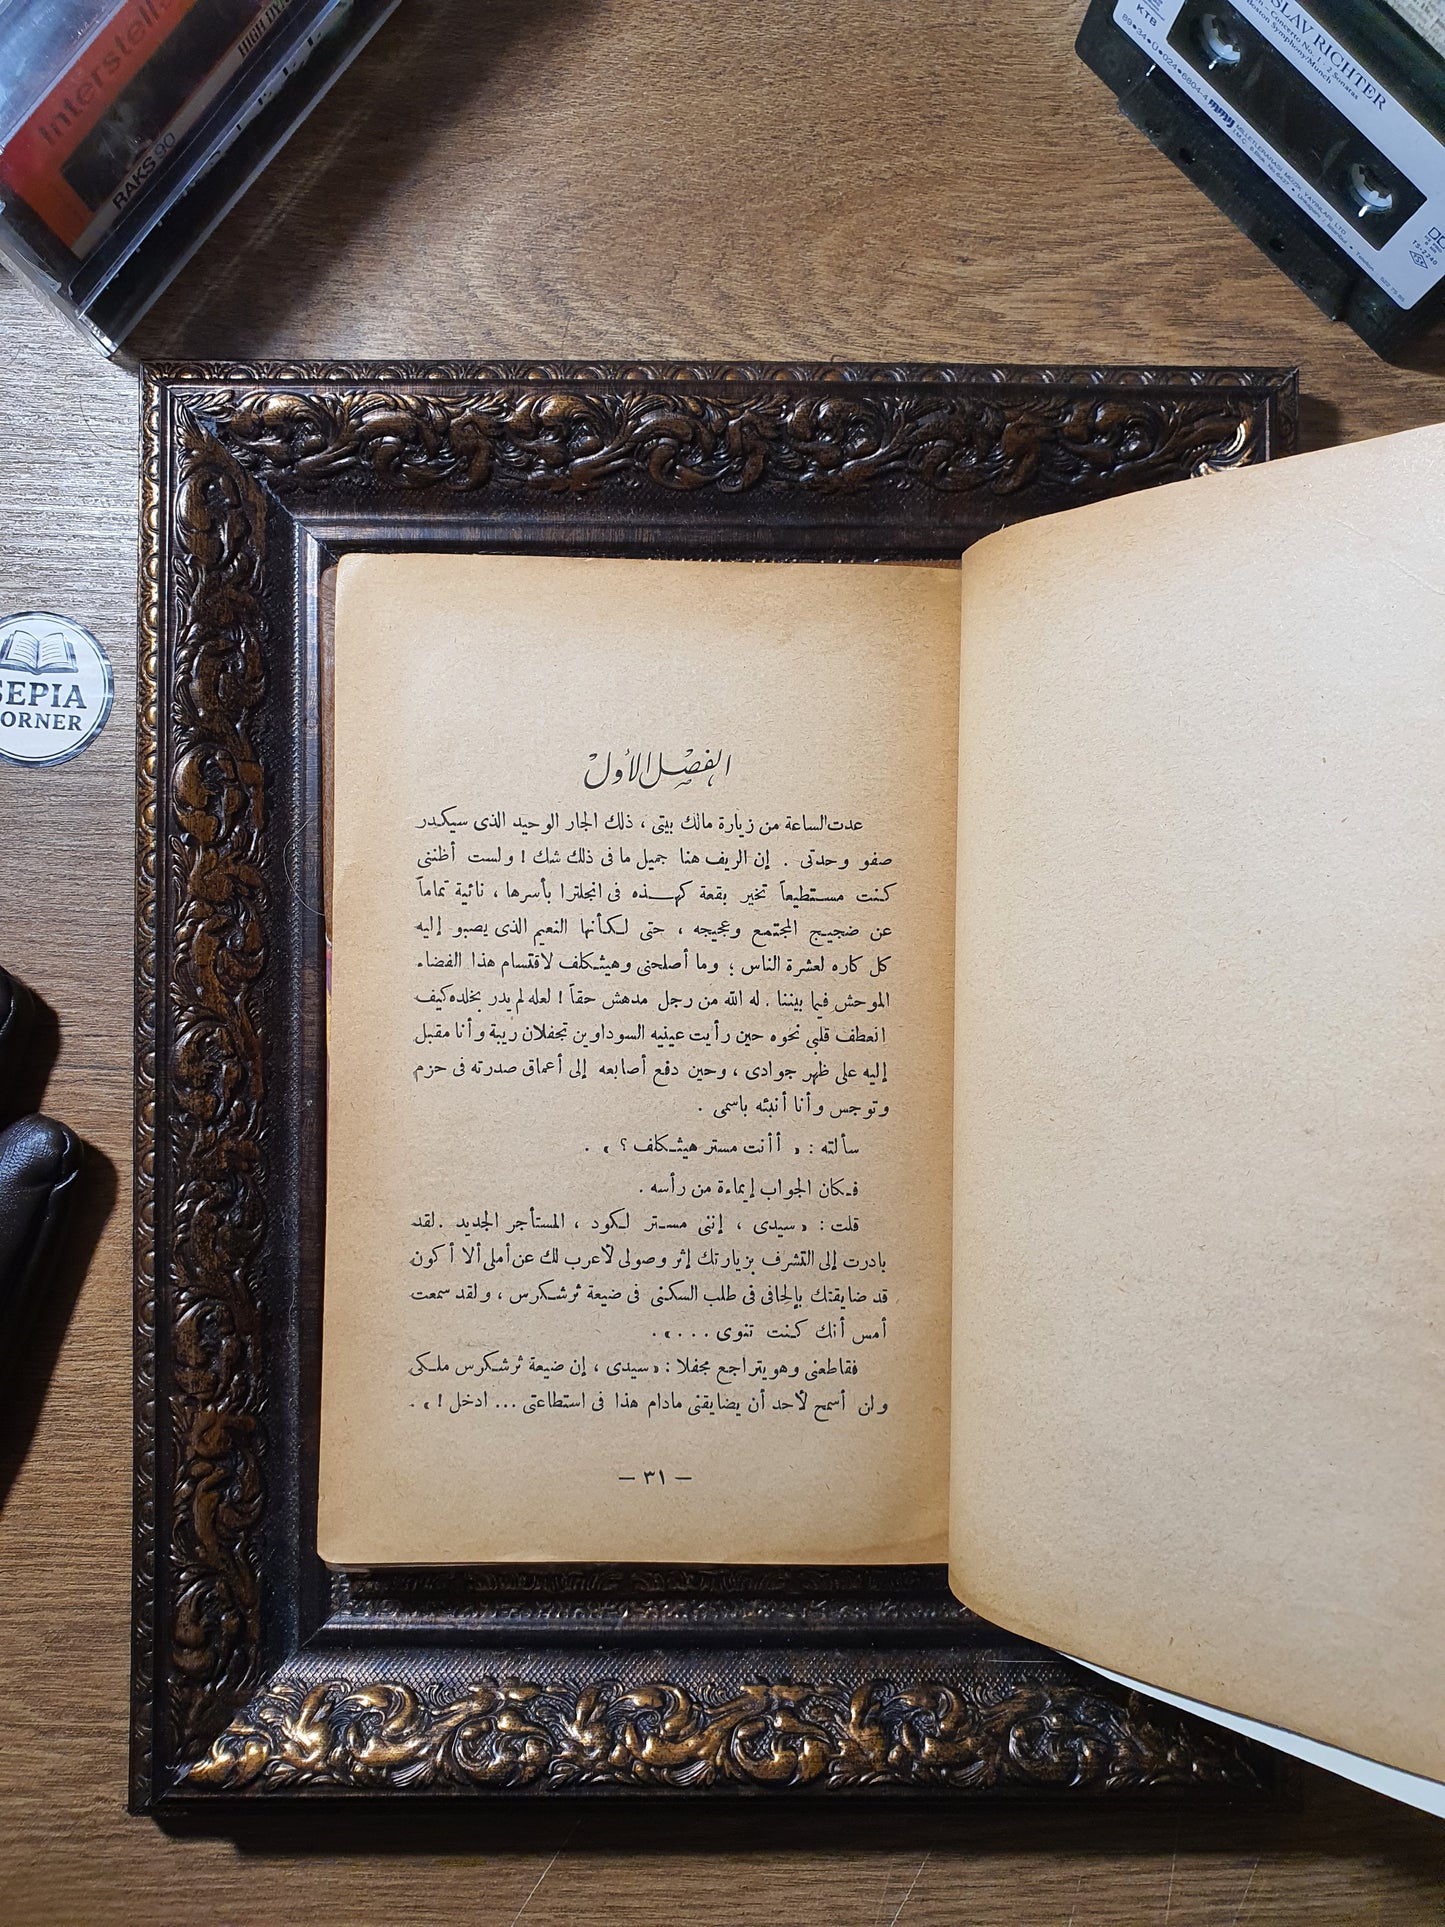 Interstell
HIGH DY
RAKS 90
KTB
89•34•Ü•024•6804-4
SLAV RICHTER
Concerto No. 1 / 2 Sonatas
Boston Symphony/Munch
MİLLETLERARASI MÜZİK YAYINLARI LTD
TS-2240
TSE
SEPIA
CORNER
الفصل الأول
عدت الساعة من زيارة مالك بيتى ، ذلك الجار الوحيد الذى سيكدر
صفو وحدتى . إن الريف هنا جميل ما فى ذلك شك ! ولست أظننى
كنت مستطيعاً تخير بقعة كهذه فى انجلترا بأسرها ، نائية تماماً
عن ضجيج المجتمع وعجيجه ، حتى لكأنها النعيم الذى يصبو إليه
كل كاره لعشرة الناس ؛ وما أصلحنى وهيثكلف لاقتسام هذا الفضاء
الموحش فيما بيننا . له الله من رجل مدهش حقاً ! لعله لم يدر بخلده كيف
انعطف قلبى نحوه حين رأيت عينيه السوداوين تجفلان ريبة وأنا مقبل
إليه على ظهر جوادى ، وحين دفع أصابعه إلى أعماق صدرته فى حزم
وتوجس وأنا أنبئه باسمى .
سألته : « أأنت مستر هيثكلف ؟ » .
فكان الجواب إيماءة من رأسه .
قلت : « سيدى ، إننى مستر لكود ، المستأجر الجديد . لقد
بادرت إلى التشرف بزيارتك إثر وصولى لأعرب لك عن أملى ألا أكون
قد ضايقتك بإلحافى فى طلب السكنى فى ضيعة ثرشكرس ، ولقد سمعت
أمس أنك كنت تنوى . . . » .
فقاطعنى وهو يتراجع مجفلا : « سيدى ، إن ضيعة ثرشكرس ملكى
ولن أسمح لأحد أن يضايقنى مادام هذا فى استطاعتى ... ادخل ! » .
— ٣١ —